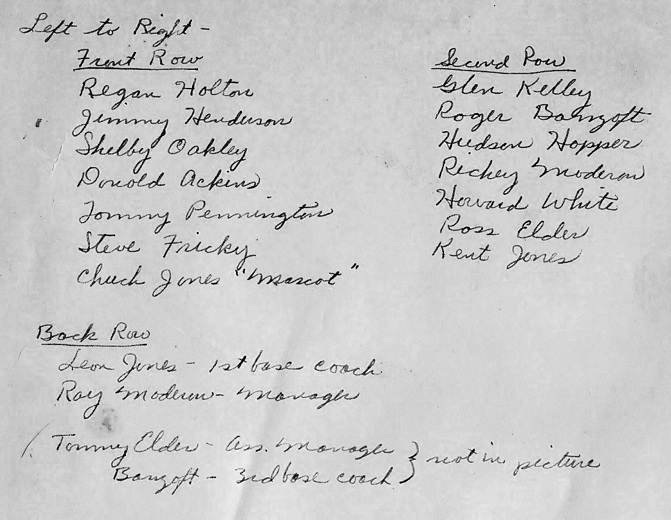 Left to Right -
Front Row
Regan Holton
Jimmy Henderson
Shelby Oakley
Donold Ackins
Tommy Pennington
Steve Fricky
Chuck Jones "Mascot"
Second Row
Glen Kelley
Roger Banzoft
Hudson Hopper
Rickey Moderow
Howard White
Ross Elder
Kent Jones
Back Row
Leon Jones - 1st base coach
Ray Moderow - Manager
(Tommy Elder - Ass. Manager } not in picture
Banzoft - 3rd base coach